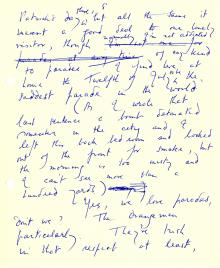 Patrick's day there, but all the same it
meant a good deal to one lonely
visitor, though normally I'm not addicted
to parades of any kind, we at
home the Twelfth of July is the
saddest parade in the world
(As I wrote that
last sentence a bomb detonated
somewhere in the city and I
left this back bedroom and looked
out of the front for smoke, but
the morning is too misty and
I can't see more than a
hundred yards)
Yes, we love parades,
don't we? The Orangemen
particularly They're Irish
in that respect at least,